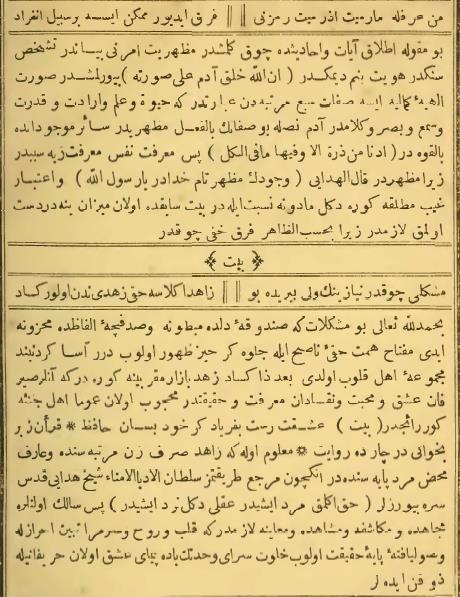 من عرفله مارميت اذرميت رمزنى || فرق ايديور ممكن ايسه برسبيل انفراد
بو مقوله اطلاق آيات واحاديثده چوق كلمشدر مظهريت امرنى بياندر تشخص
سنكدر هويت بنم ديمكدر ( ان الله خلق آدم على صورته ) بيورلمشدر صورت
الهيه كمايه ايسه صفات سبع مرتبه دن عبارتدر كه حيوة وعلم وارادت و قدرت
وسمع وبصر وكلامدر آدم نصله بو صفاتك بالفعل مظهريدر سائر موجوداتده
بالقوه در ( ادنا من ذرة الا وفيها مافى الكل ) پس معرفت نفس معرفت زيه سببدر
زيرا مظهردر قال الهدايى ( وجودك مظهر تام خدادر يار سول الله ) واعتبار
غيب مطلقه كوره دكل مادونه نسبت ايله در بيت سابقده اولان ميزان بنه در دست
اولمق لازمدر زيرا بحسب الظاهر فرق خفى چوقدر
بيت
مشكلى چوقدر نيازينك ولى بيريده بو || زاهدا كلاسه حق زهدى ندن اولور كساد
بحمد الله تعالى بو مشكلات كه صندوقۀ دلده مبطونه وصدفچۀ الفاظده مخزونه
ايدى مفتاح همت حقى ناصح ايله جلوه كر حيز ظهور اولوب درر آسا كردنبند
مجموعۀ اهل قلوب اولدى بعد ذا كساد زهد بازار مقربينه كوره دركه آنلر صير
فان عشق و محبت ونقادان معرفت و حقيقتدر محجوب اولان عموما اهل جنته
كوررائجدر ( بيت ) عشقت رست بفرياد كر خود بسان حافظ * قرآن زبر
بخوانى در چارده روايت * معلوم اوله كه زاهد صرف زن مرتبه سنده وعارف
محض مرد پايه سنده در انكچون مرجع طريقتمز سلطان الادبا الامناء شيخ هدايى قدس
سره بيورزلر ( حق اكلمق مرد ايشيدر عقلى دكل نرد ايشيدر ) پس سالك اولنلره
مجاهده و مكاشفه ومشاهده ومعاينه لازمدر كه قلب وروح وسر مراتبين احرازله
وصول يافتۀ پايۀ حقيقت اولوب خلوت سراى وحدتك باده پيماى عشق اولان حريفانيله
ذوقن ايده لر